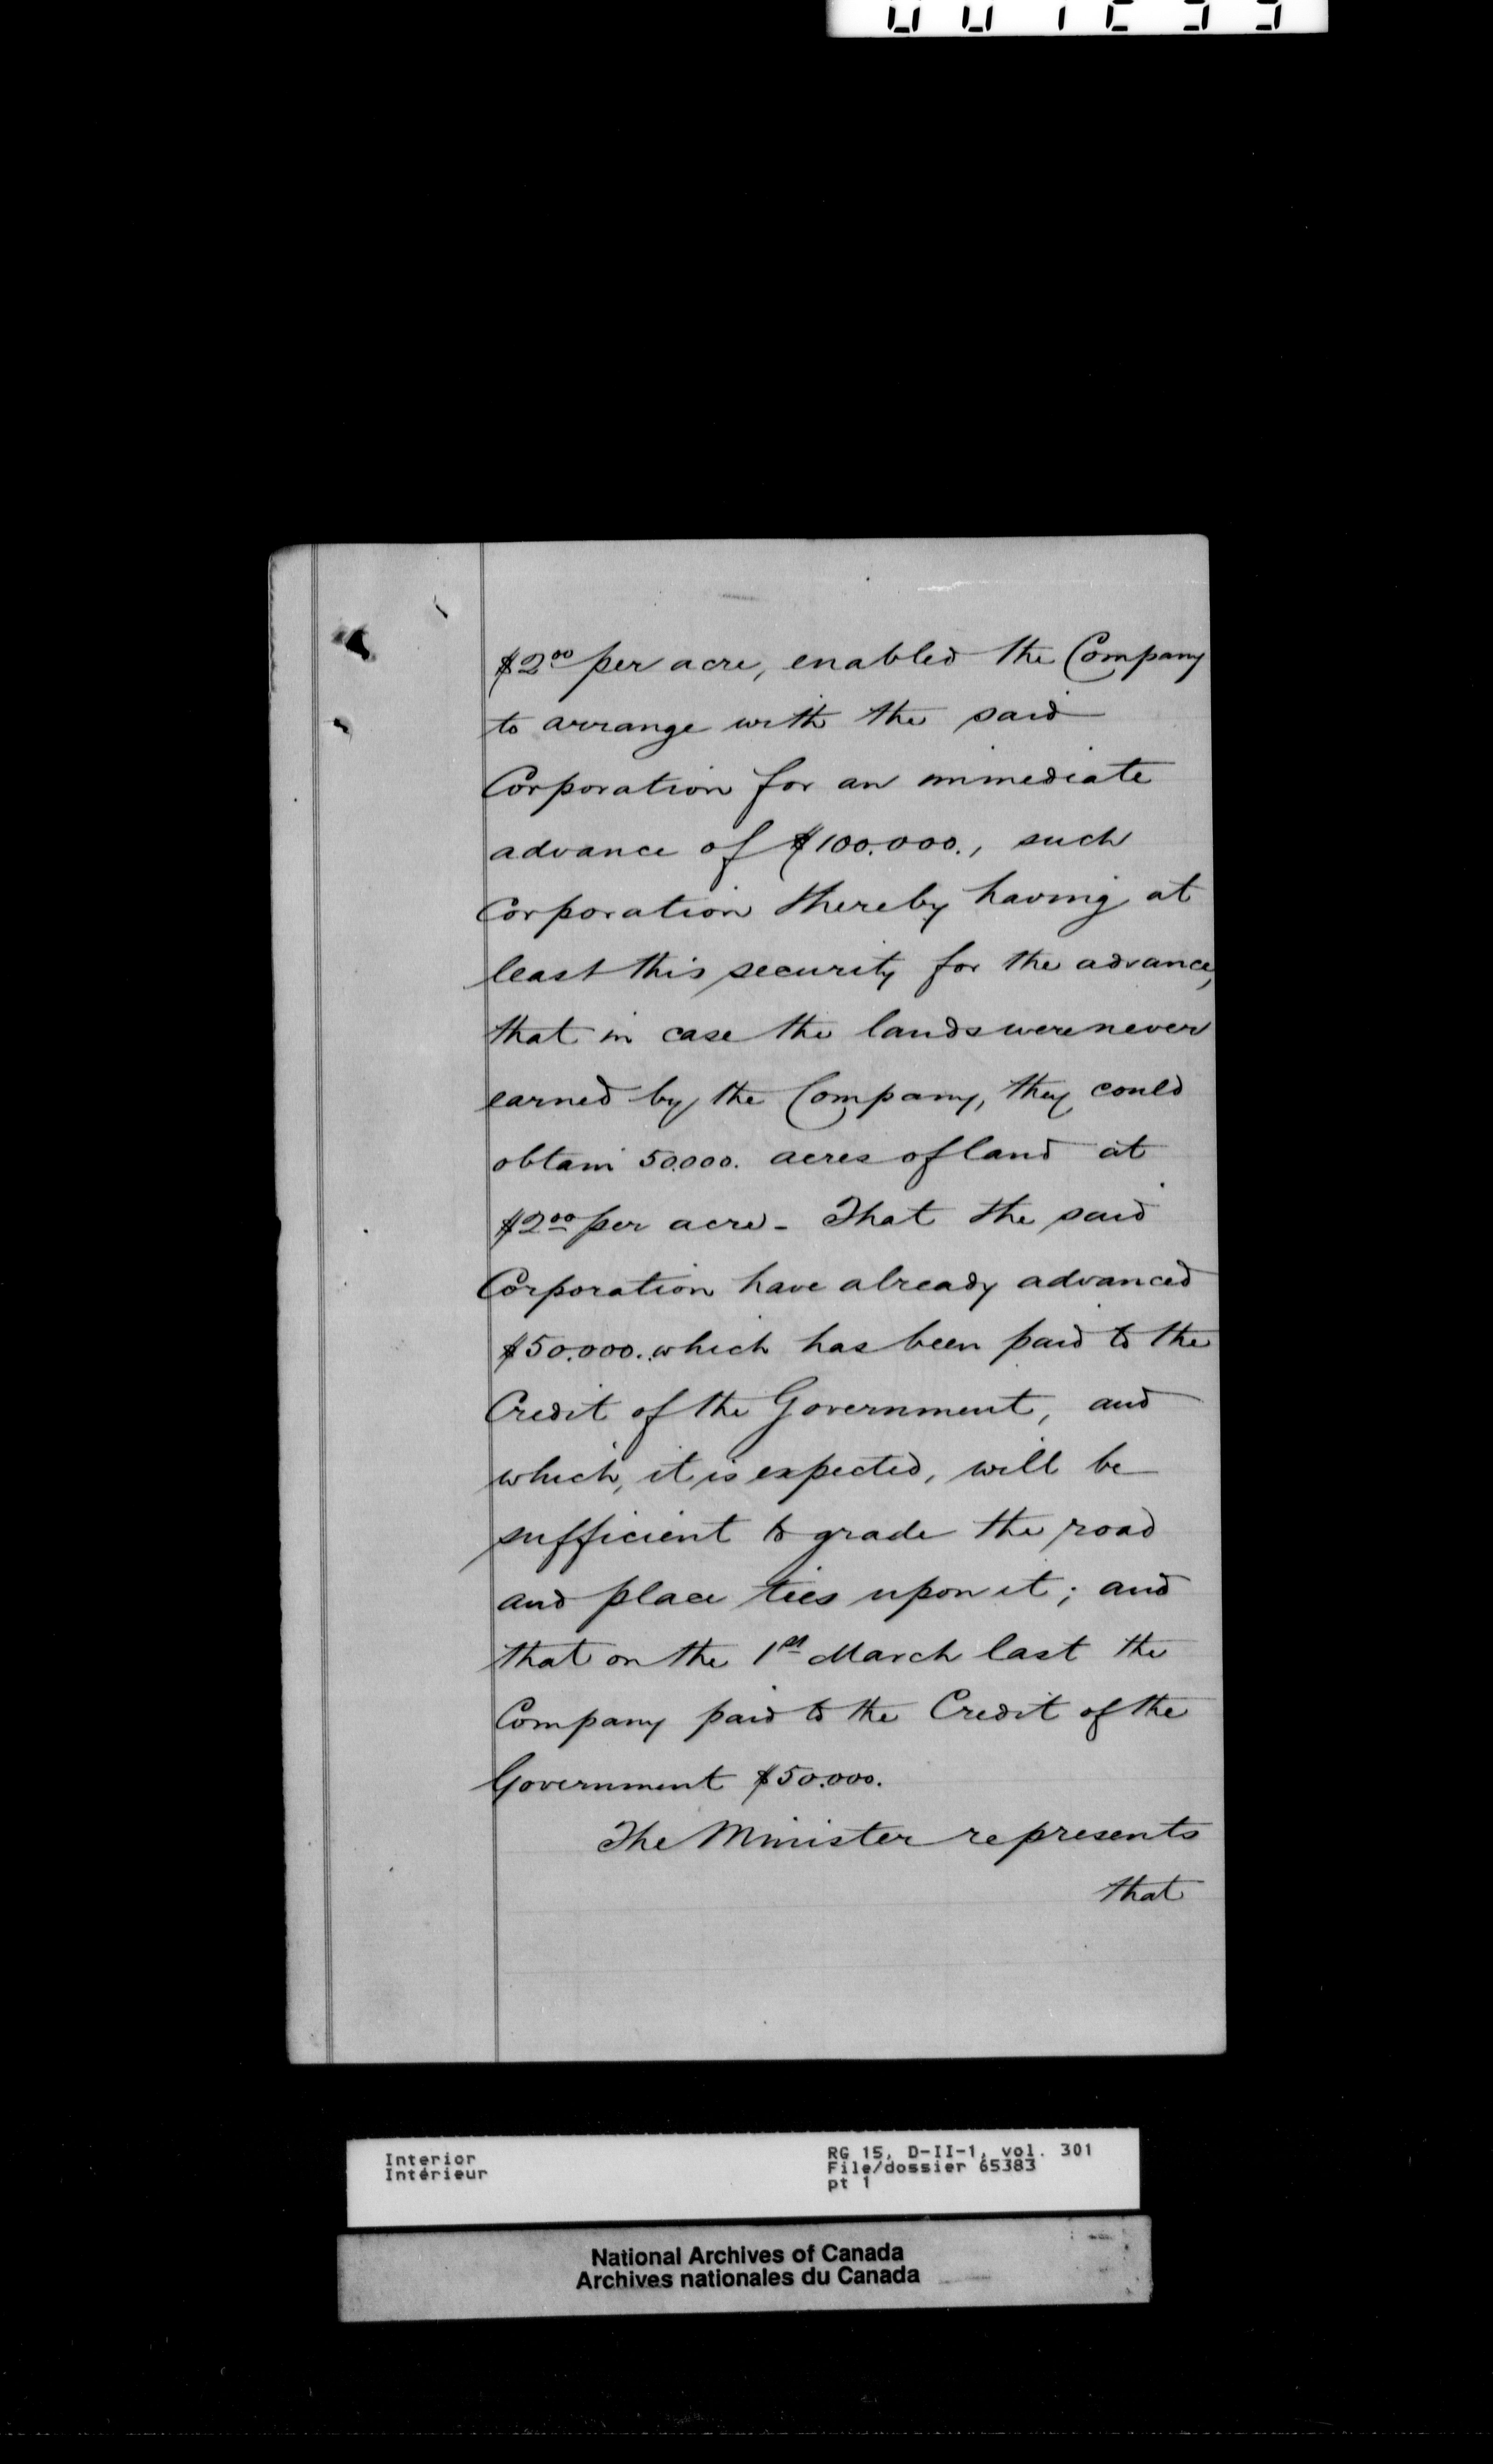 $2⁰⁰ per acre, enabled the Company
to arrange with the said
Corporation for an immediate
advance of $100.000., such
Corporation thereby having at
least this security for the advance,
that in case the lands were never
earned by the Company, they could
obtain 50.000. acres of land at
$2⁰⁰ per acre - That the said
Corporation have already advanced
$50.000. which has been paid to the
Credit of the Government, and
which, it is expected, will be
sufficient to grade the road
and place ties upon it; and
that on the 1st March last the
Company paid to the Credit of the
Government $50.000.
The Minister represents
that
Interior
Intérieur
RG 15, D-II-1, vol. 301
File/dossier 65383
pt 1
National Archives of Canada
Archives nationales du Canada